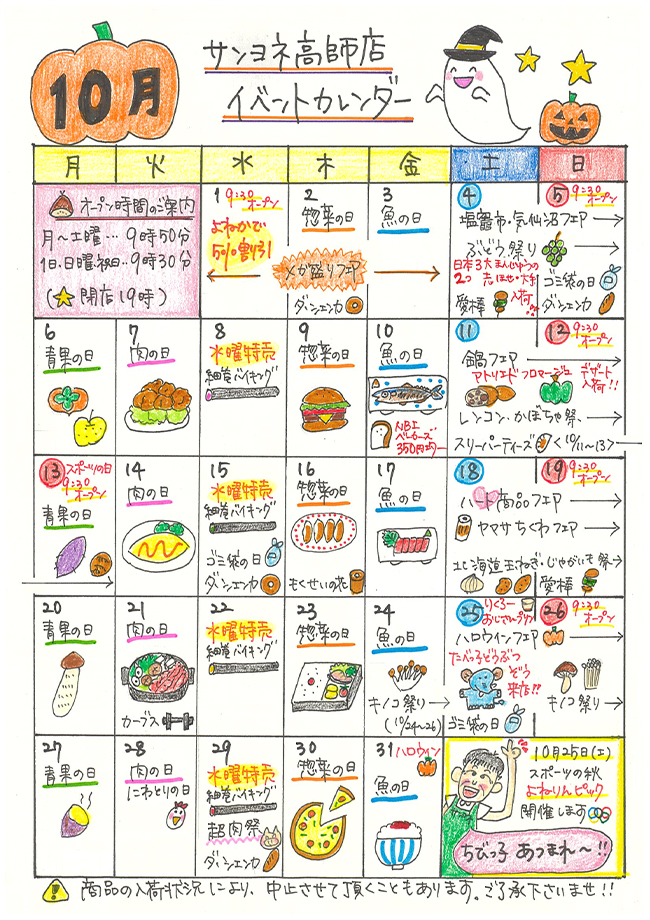 10月
サンヨネ高師店
イベントカレンダー
月 火 水 木 金 土 日
オープン時間のご案内
月～土曜…9時50分
1日、日曜、祝日…9時30分
(★閉店19時)
1 9:30オープン
よねかで
5%割引
2
惣菜の日
メガ盛りフェア
ダンシェンカ
3
魚の日
4
5 9:30オープン
塩竈市・気仙沼フェア
ぶどう祭り
日本3大まんじゅうの
2つ
入荷
愛棒
ゴミ袋の日
ダンシェンカ
6
青果の日
7
肉の日
8
水曜特売
細巻バイキング
9
惣菜の日
10
魚の日
NBI
ベーカーズ
350円均一
11
12 9:30オープン
鍋フェア
アトリエドフロマージュ
デザート
入荷!!
レンコン・かぼちゃ祭
スリーパーティーズ <10/11～13>
13 スポーツの日
9:30オープン
青果の日
14
肉の日
15
水曜特売
細巻バイキング
ゴミ袋の日
ダンシェンカ
16
惣菜の日
もくせいの花
17
魚の日
18
19 9:30オープン
ハート商品フェア
ヤマサちくわフェア
北海道玉ねぎ・じゃがいも祭
愛棒
20
青果の日
21
肉の日
カーブス
22
水曜特売
細巻バイキング
23
惣菜の日
24
魚の日
キノコ祭り
(10/24～26)
25 りくろー
おじさんプリン
26 9:30オープン
ハロウィンフェア
たべっ子どうぶつ
ぞう
来店!!
ゴミ袋の日
キノコ祭り
27
青果の日
28
肉の日
にわとりの日
29
水曜特売
細巻バイキング
超肉祭
ダンシェンカ
30
惣菜の日
31 ハロウィン
魚の日
10月25日(土)
スポーツの秋
よねりんピック
開催します
ちびっ子 あつまれ〜!!
商品の入荷状況により、中止させて頂くこともあります。ご了承下さいませ!!